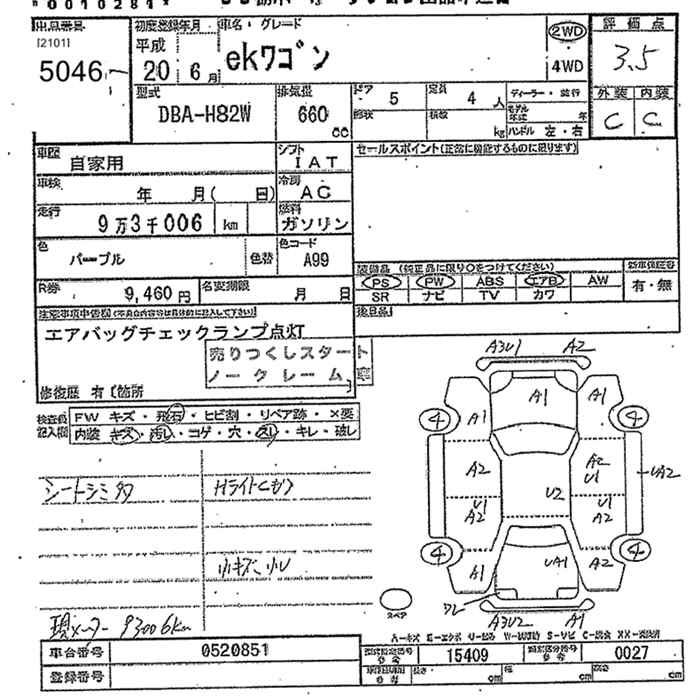 0010284
出品番号
[2101]
5046
初度登録年月
平成
20 6月
車名・グレード
ekワゴン
2WD
4WD
評価点
3.5
外装 内装
C C
型式
DBA-H82W
排気量
660 cc
ドア 5
形状
定員 4人
積載 kg
ディーラー・並行
モデル年式 年
ハンドル 左・右
車歴 自家用
シフト IAT
車検 年 月( 日)
冷房 AC
走行 9万3千006 km
燃料 ガソリン
色 パープル 色替
色コード A99
R券 9,460円
名変期限 月 日
セールスポイント(正常に機能するものに限ります)
装備品 (純正品に限り○をつけてください)
PS PW ABS エアB AW
SR ナビ TV カワ
新車保証書
有・無
後日品
エアバッグチェックランプ点灯
売りつくしスタート
ノークレーム
修復歴 有 [箇所
検査員記入欄
FW キズ・飛石・ヒビ割・リペア跡・×要
内装 キズ・汚レ・コゲ・穴・スレ・キレ・破レ
シートシミ
Hライト
現メーター 93006km
A3U1 A2
A1 A1 A1
4 4
A2 A2 U1 UA2
U1 A2 U2 U1 A2
4 4
A1 UA1 A2
スペア
A3U2 A1
車台番号 0520851
登録番号
型式指定番号 参考 15409
類別区分番号 参考 0027
長さ・ cm 幅 cm 高さ cm